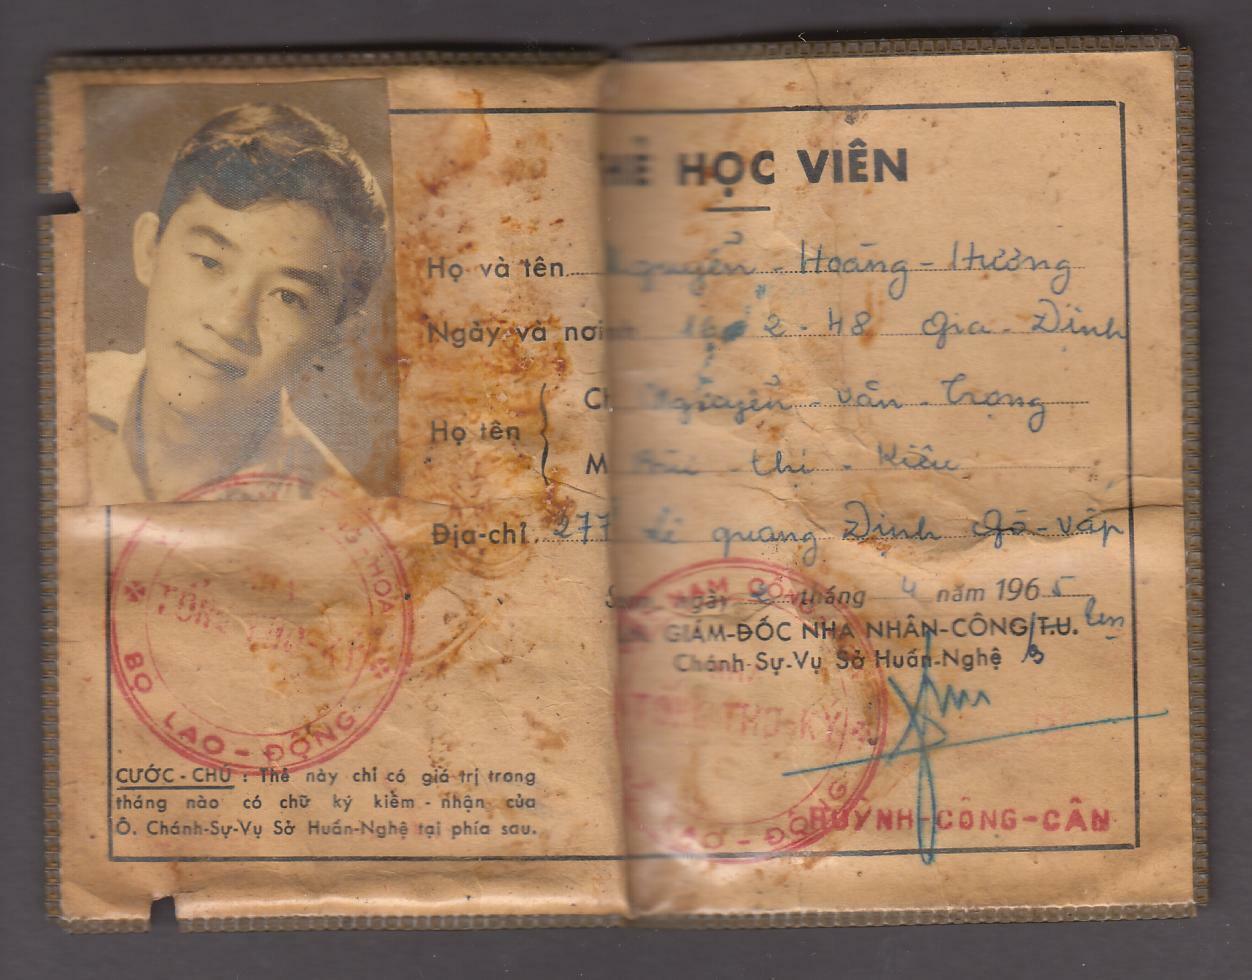 HỌC VIÊN
Họ và tên Nguyễn - Hoàng - Hường
Ngày và nơi 2 - 48 Gia - Định
Họ tên
Nguyễn - Văn - Trọng
M thị - Kiều
Địa-chỉ 277 Lê quang Định Gò-vấp
ngày 2 tháng 4 năm 1965
GIÁM-ĐỐC NHA NHÂN-CÔNG/T.U.
Chánh-Sự-Vụ Sở Huấn-Nghệ
HUỲNH-CÔNG-CÂN
HÒA
TỔNG THƠ-KÝ
BỘ LAO-ĐỘNG
NAM CỘNG
TỔNG THƠ-KÝ
LAO-ĐỘNG
CƯỚC-CHÚ : Thẻ này chỉ có giá trị trong
tháng nào có chữ ký kiểm-nhận của
Ô. Chánh-Sự-Vụ Sở Huấn-Nghệ tại phía sau.